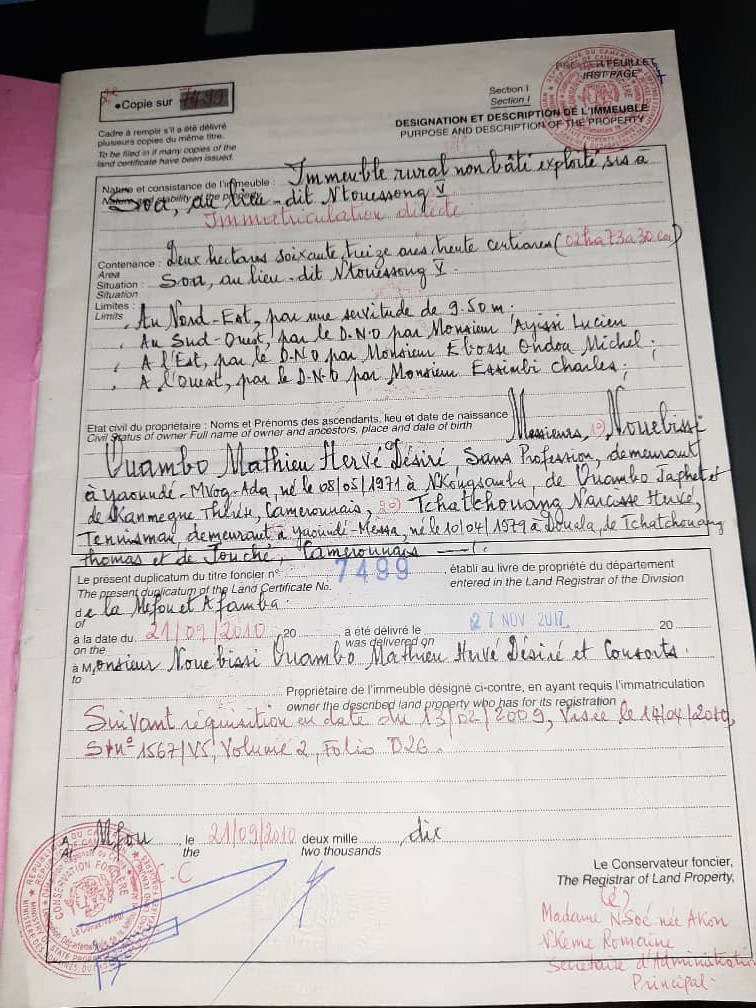 •Copie sur 7499
Cadre à remplir s'il a été délivré
plusieurs copies du même titre.
To be filled in if many copies of the
land certificate have been issued.
PREMIER FEUILLET
FIRST PAGE
Section I
Section I
DESIGNATION ET DESCRIPTION DE L'IMMEUBLE
PURPOSE AND DESCRIPTION OF THE PROPERTY
Nature et consistance de l'immeuble : Immeuble rural non bâti exploité, sis à
Soa, au lieu-dit Ntouessong V
Immatriculation directe
Contenance : Deux hectares soixante treize ares trente centiares (02ha73a30ca)
Area
Situation : Soa, au lieu-dit Ntouessong V.
Situation
Limites :
Limits
Au Nord-Est, par une servitude de 9.50 m.
Au Sud-Ouest, par le D.N.O par Monsieur Ayissi Lucien
A l'Est, par le D.N.O par Monsieur Ebosse Ondoa Michel;
A l'Ouest, par le D.N.O par Monsieur Essimbi Charles;
Etat civil du propriétaire : Noms et Prénoms des ascendants, lieu et date de naissance
Civil Status of owner Full name of owner and ancestors, place and date of birth
Messieurs, 1°) Nouebissi
Ouambo Mathieu Hervé Désiré, Sans Profession, demeurant
à Yaoundé-Mvog-Ada, né le 08/05/1971 à Nkongsamba, de Ouambo Japhet et
de Kanmegne Thérèse, Camerounais, 2°) Tchatchouang Narcisse Hervé,
Tennisman, demeurant à Yaoundé-Messa, né le 10/04/1979 à Douala, de Tchatchouang
Thomas et de Touché, Camerounais
Le présent duplicatum du titre foncier n° 7499, établi au livre de propriété du département
The present duplicatum of the Land Certificate No. entered in the Land Registrar of the Division
de la Mefou et Afamba.
of
à la date du 21/09/2010, 20 a été délivré le 27 NOV 2017 20
on the was delivered on
à Monsieur Nouebissi Ouambo Mathieu Hervé Désiré et Consorts.
to
Propriétaire de l'immeuble désigné ci-contre, en ayant requis l'immatriculation
owner the described land property who has for its registration
Suivant réquisition en date du 13/02/2009, Visée le 14/04/2010,
S/n° 1567/V5, Volume 2, Folio 026.
A Mfou, le 21/09/2010 deux mille dix
At the two thousands
Le Conservateur foncier,
The Registrar of Land Property,
(é)
Madame Nsoé née Akon
Nkeme Romaine
Secrétaire d'Administration
Principal
CONSERVATION FONCIERE